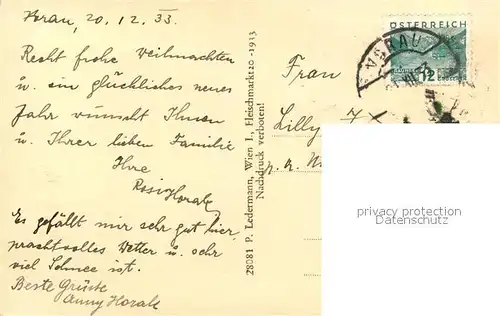 Vorau, 20. 12. 33.
Recht frohe Weihnachten
u. ein glückliches neues
Jahr wünscht Ihnen
u. Ihrer lieben Familie
Ihre
Rosi Horak
Es gefällt mir sehr gut hier,
prachtvolles Wetter u. sehr
viel Schnee ist.
Beste Grüsse
Anny Horak
28081 P. Ledermann, Wien I., Fleischmarkt 20 - 1933
Nachdruck verboten!
ÖSTERREICH
12
VORAU
Frau
Lilly
privacy protection
Datenschutz